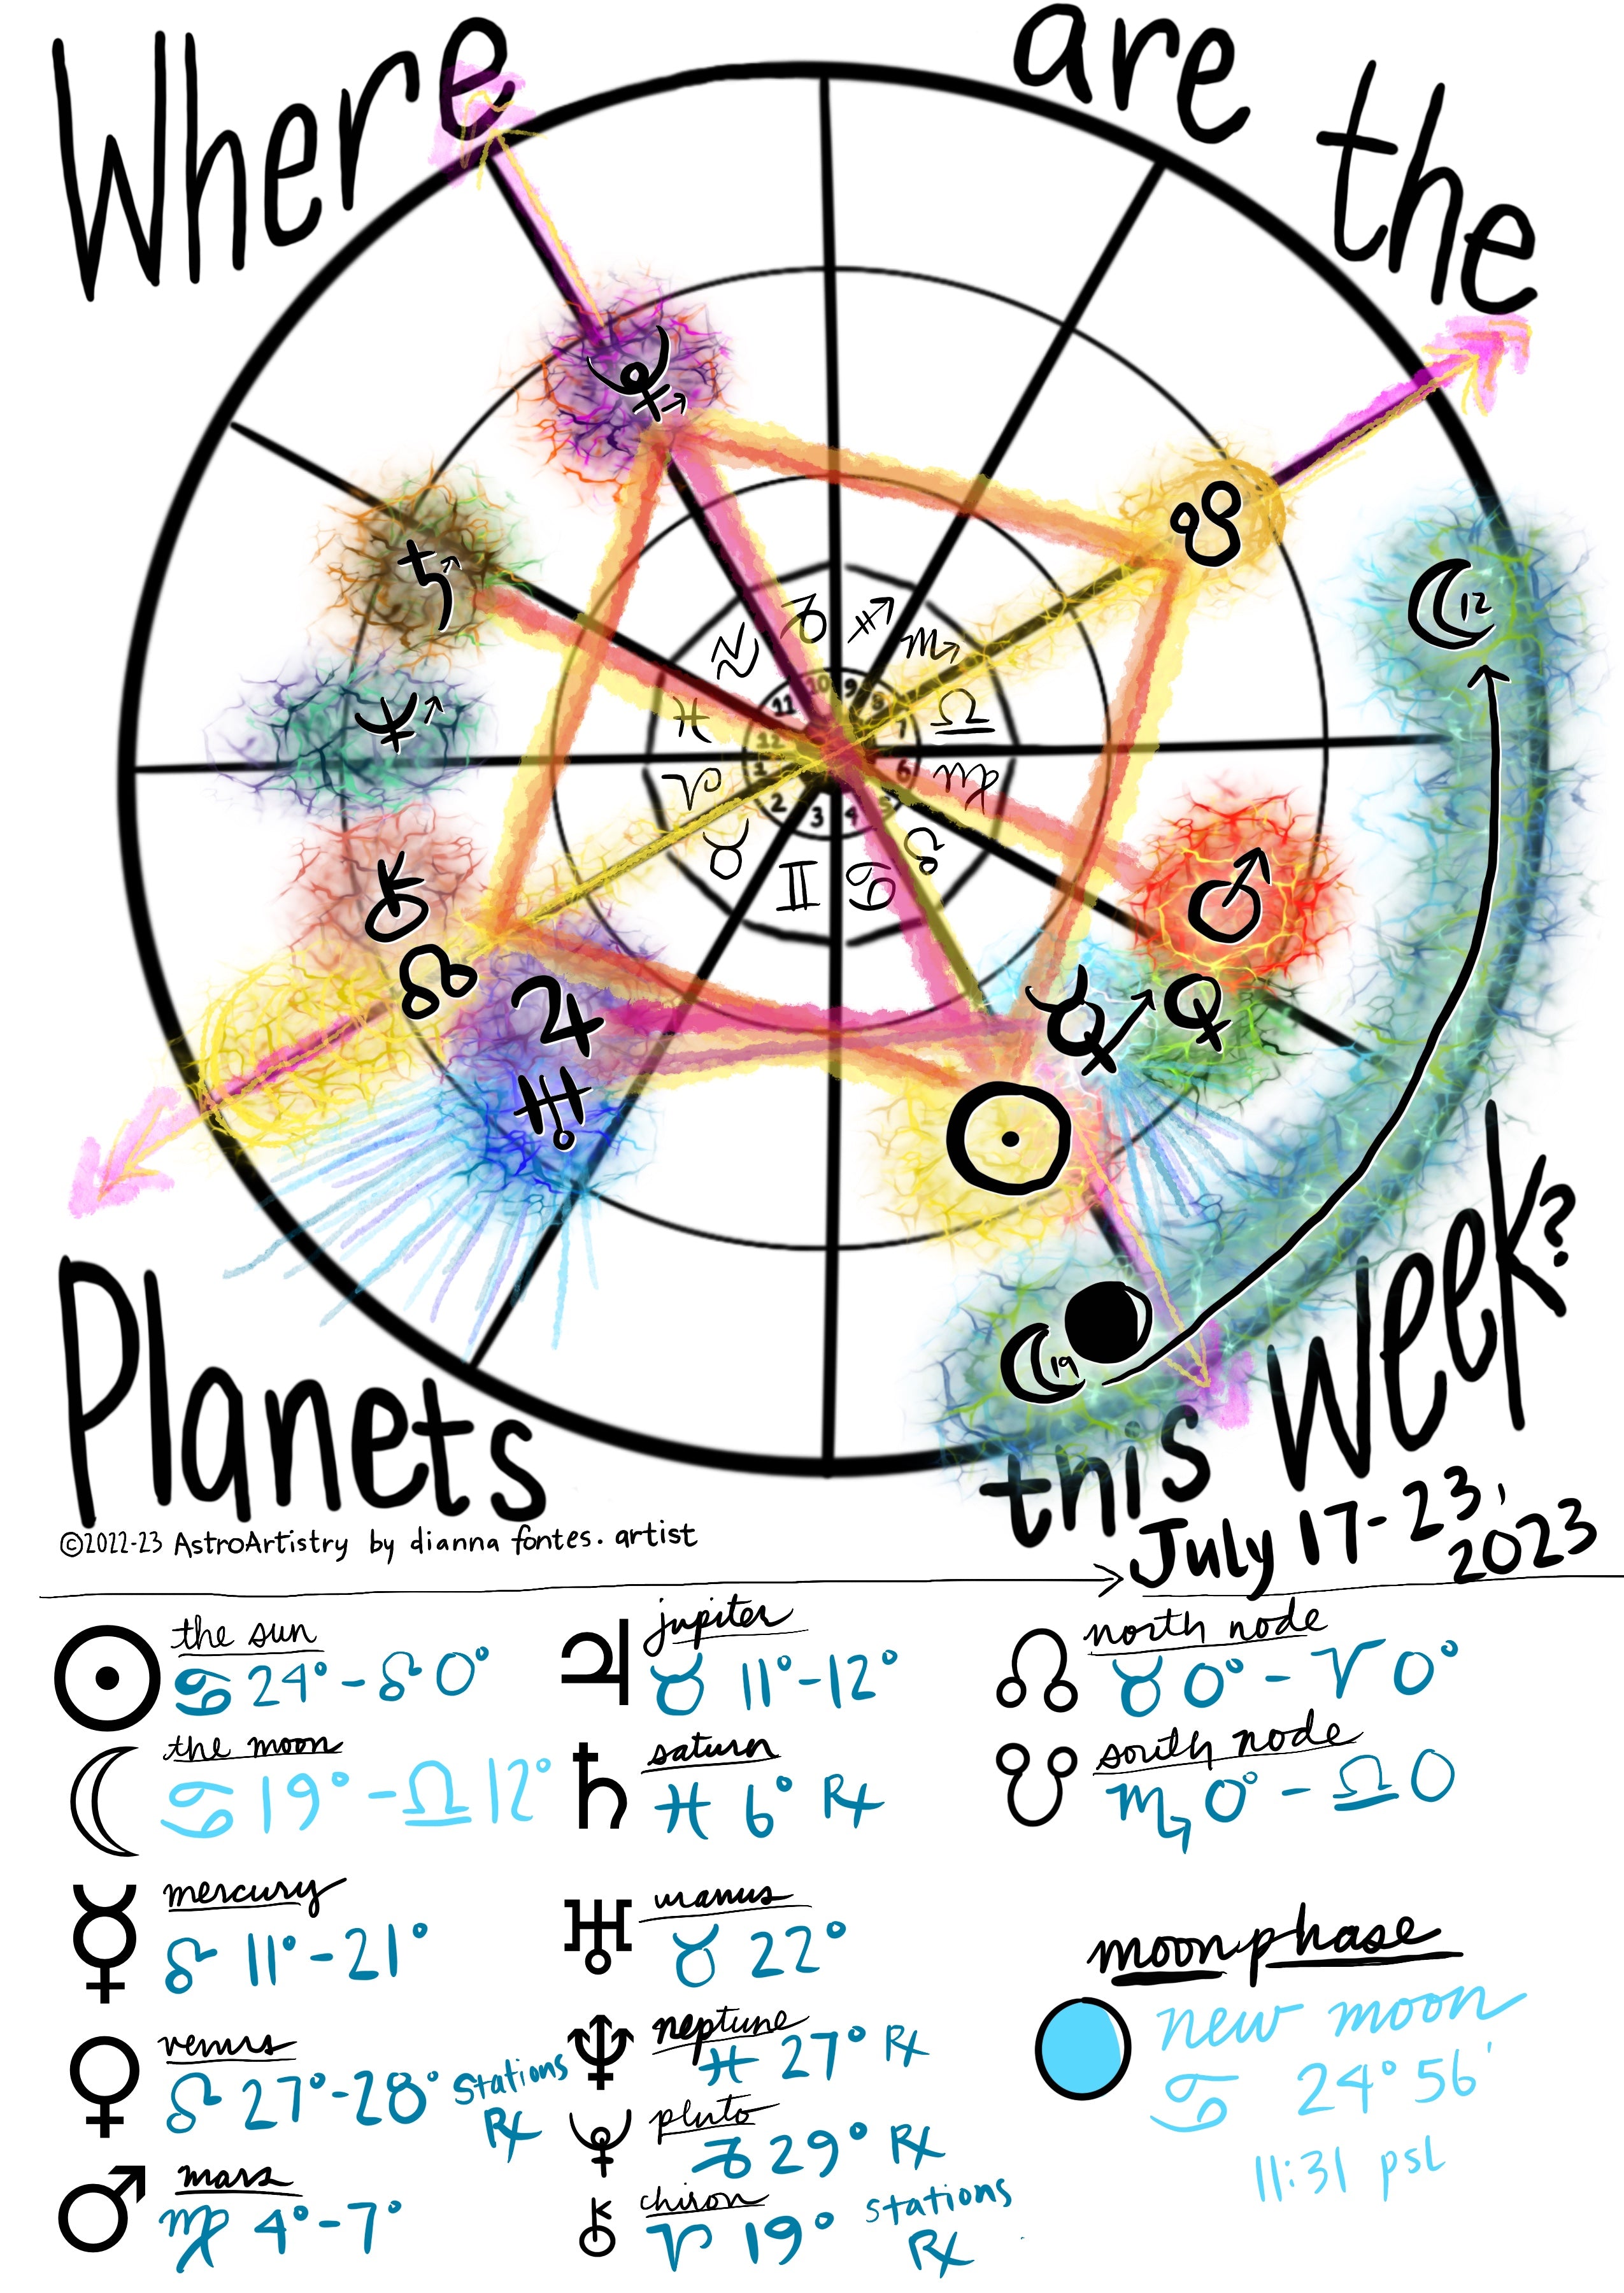 Where are the
Planets this Week?
©2022-23 AstroArtistry by dianna fontes. artist
July 17-23, 2023
♇
☋
♄
☾12
♆
♑ ♐
♒ ♏
♓ ♎
♈ ♍
♉ ♌
♊ ♋
10 9
11 8
12 7
1 6
2 5
3 4
♂
⚷
☊
♃
☿ ♀
♅
☉
☾19
☉ the sun
♋ 24° - ♌ 0°
☾ the moon
♋ 19° - ♎ 12°
☿ mercury
♌ 11° - 21°
♀ venus
♌ 27° - 28° stations
℞
♂ mars
♍ 4° - 7°
♃ jupiter
♉ 11° - 12°
♄ saturn
♓ 6° ℞
♅ uranus
♉ 22°
♆ neptune
♓ 27° ℞
♇ pluto
♑ 29° ℞
⚷ chiron
♈ 19° stations
℞
☊ north node
♉ 0° - ♈ 0°
☋ south node
♏ 0° - ♎ 0
moonphase
new moon
♋ 24° 56'
11:31 pst